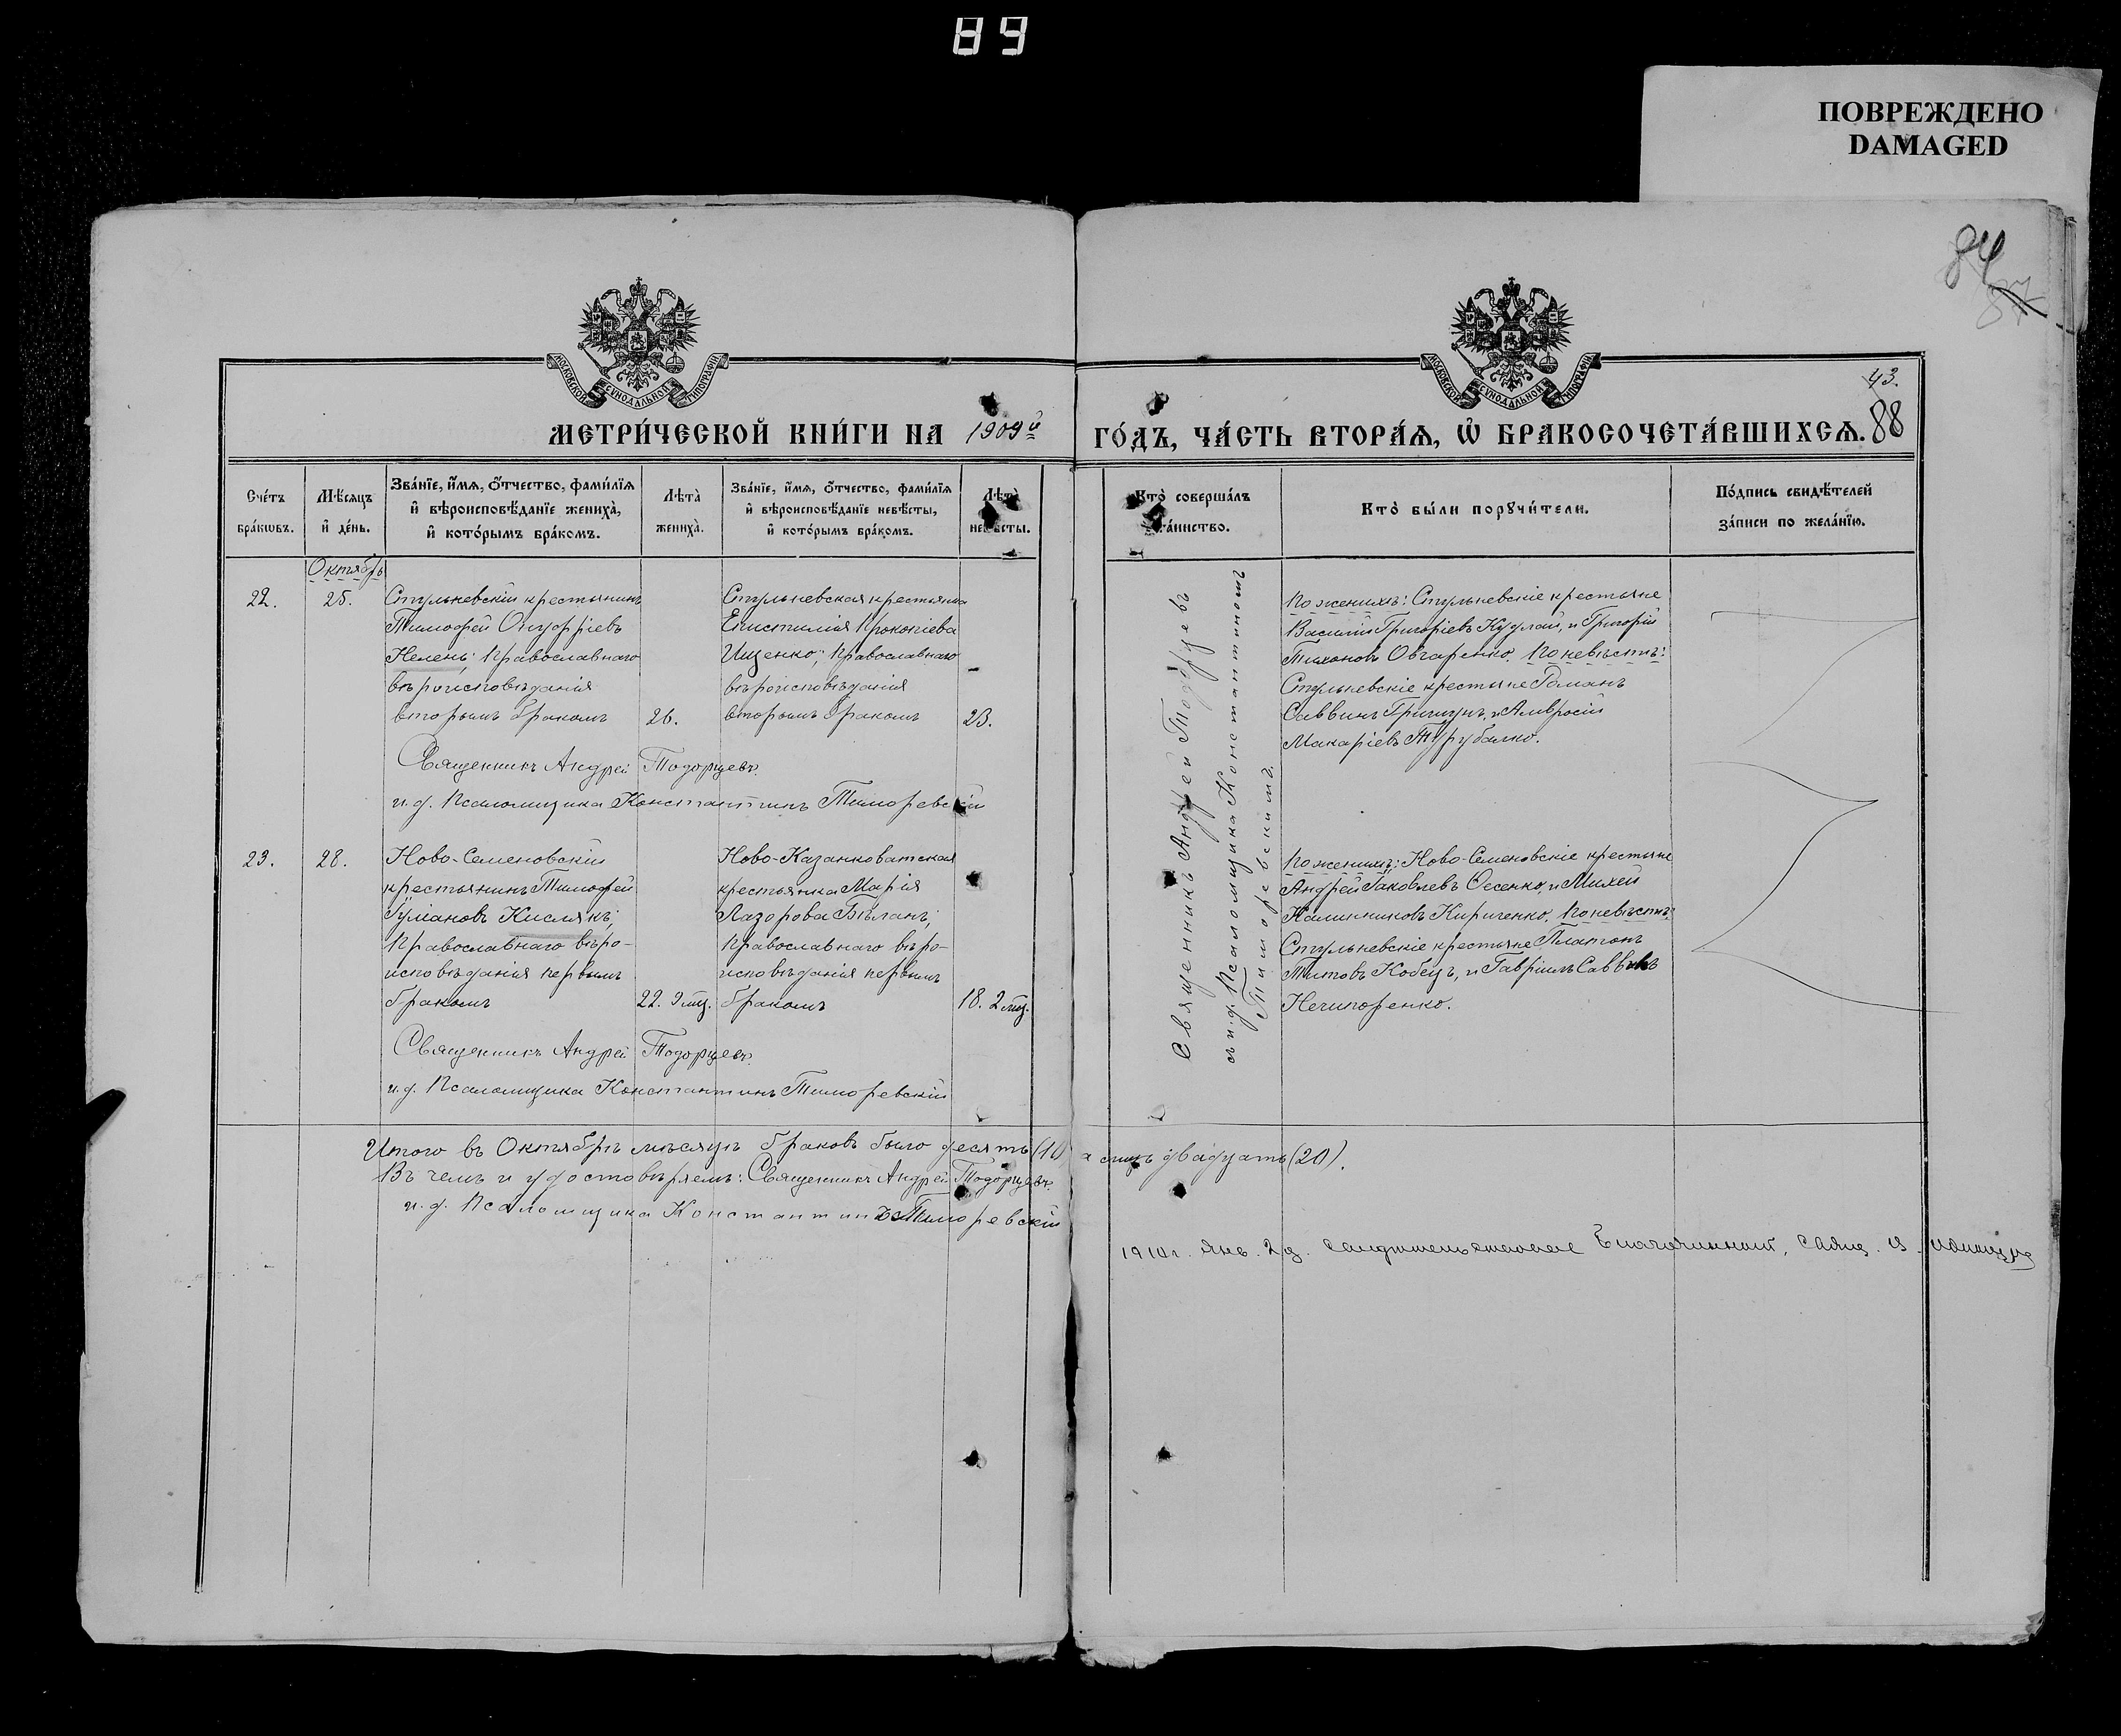 89
ПОВРЕЖДЕНО
DAMAGED
84
87
43.
88
МОСКОВСКОЙ СѴНОДАЛЬНОЙ ТИПОГРАФІИ
МОСКОВСКОЙ СѴНОДАЛЬНОЙ ТИПОГРАФІИ
МЕТРИ́ЧЕСКОЙ КНИ́ГИ НА 1909й ГО́ДЪ, ЧА́СТЬ ВТОРА́Ѧ, Ѡ҆ БРАКОСОЧЕТА́ВШИХСѦ.
Сче́тъ бра́кѡвъ.
Мѣ́сяцъ и҆ де́нь.
Зва́нїе, и҆́мѧ, ѻ҆́тчество, фами́лїѧ
и҆ вѣроисповѣ́данїе жениха̀,
и҆ кото́рымъ бра́комъ.
Лѣта̀ жениха̀.
Зва́нїе, и҆́мѧ, ѻ҆́тчество, фами́лїѧ
и҆ вѣроисповѣ́данїе невѣ́сты,
и҆ кото́рымъ бра́комъ.
Лѣта̀ невѣ́сты.
Кто̀ соверша́лъ та́инство.
Кто̀ бы́ли порꙋчи́тели.
По́дпись свидѣ́телей
за́писи по жела́нїю.
Октябрь
22.
25.
Стульневскій крестьянинъ
Тимофей Онуфріевъ
Нелень; Православнаго
вѣроисповѣданія
вторымъ бракомъ
26.
Стульневская крестьянка
Епистимія Прокопіева
Ищенко; Православнаго
вѣроисповѣданія
вторымъ бракомъ
23.
Священникъ Андрей
съ и.д. Псаломщика Константиномъ
По женихѣ: Стульневскіе крестьяне
Василій Григоріевъ Кудлай, и Григорій
Тихоновъ Овчаренко. По невѣстѣ:
Стульневскіе крестьяне Романъ
Саввинъ и Амвросій
Макаріевъ Трубалко.
Священникъ Андрей
и.д. Псаломщика Константинъ
23.
28.
Ново-Семеновскій
крестьянинъ Тимофей
Іуліановъ Кислякъ;
Православнаго вѣро-
исповѣданія первымъ
бракомъ
22. 9 мц.
Ново-Казанковатская
крестьянка Марія
Лазорова Бѣланъ;
Православнаго вѣро-
исповѣданія первымъ
бракомъ
18. 2 мц.
По женихѣ: Ново-Семеновскіе крестьяне
Андрей Іаковлевъ и Михей
Калинниковъ Кириченко. По невѣстѣ:
Стульневскіе крестьяне Платонъ
Титовъ Кобецъ, и Гавріилъ Саввинъ
Нечипоренко.
Священникъ Андрей
и.д. Псаломщика Константинъ
Итого въ Октябрѣ мѣсяцѣ браковъ было десять (10) а лицъ двадцать (20).
Въ чемъ и удостовѣряемъ: Священникъ Андрей
и.д. Псаломщика Константинъ
1910 г. Янв. 2 д. Благочинный, Свящ.